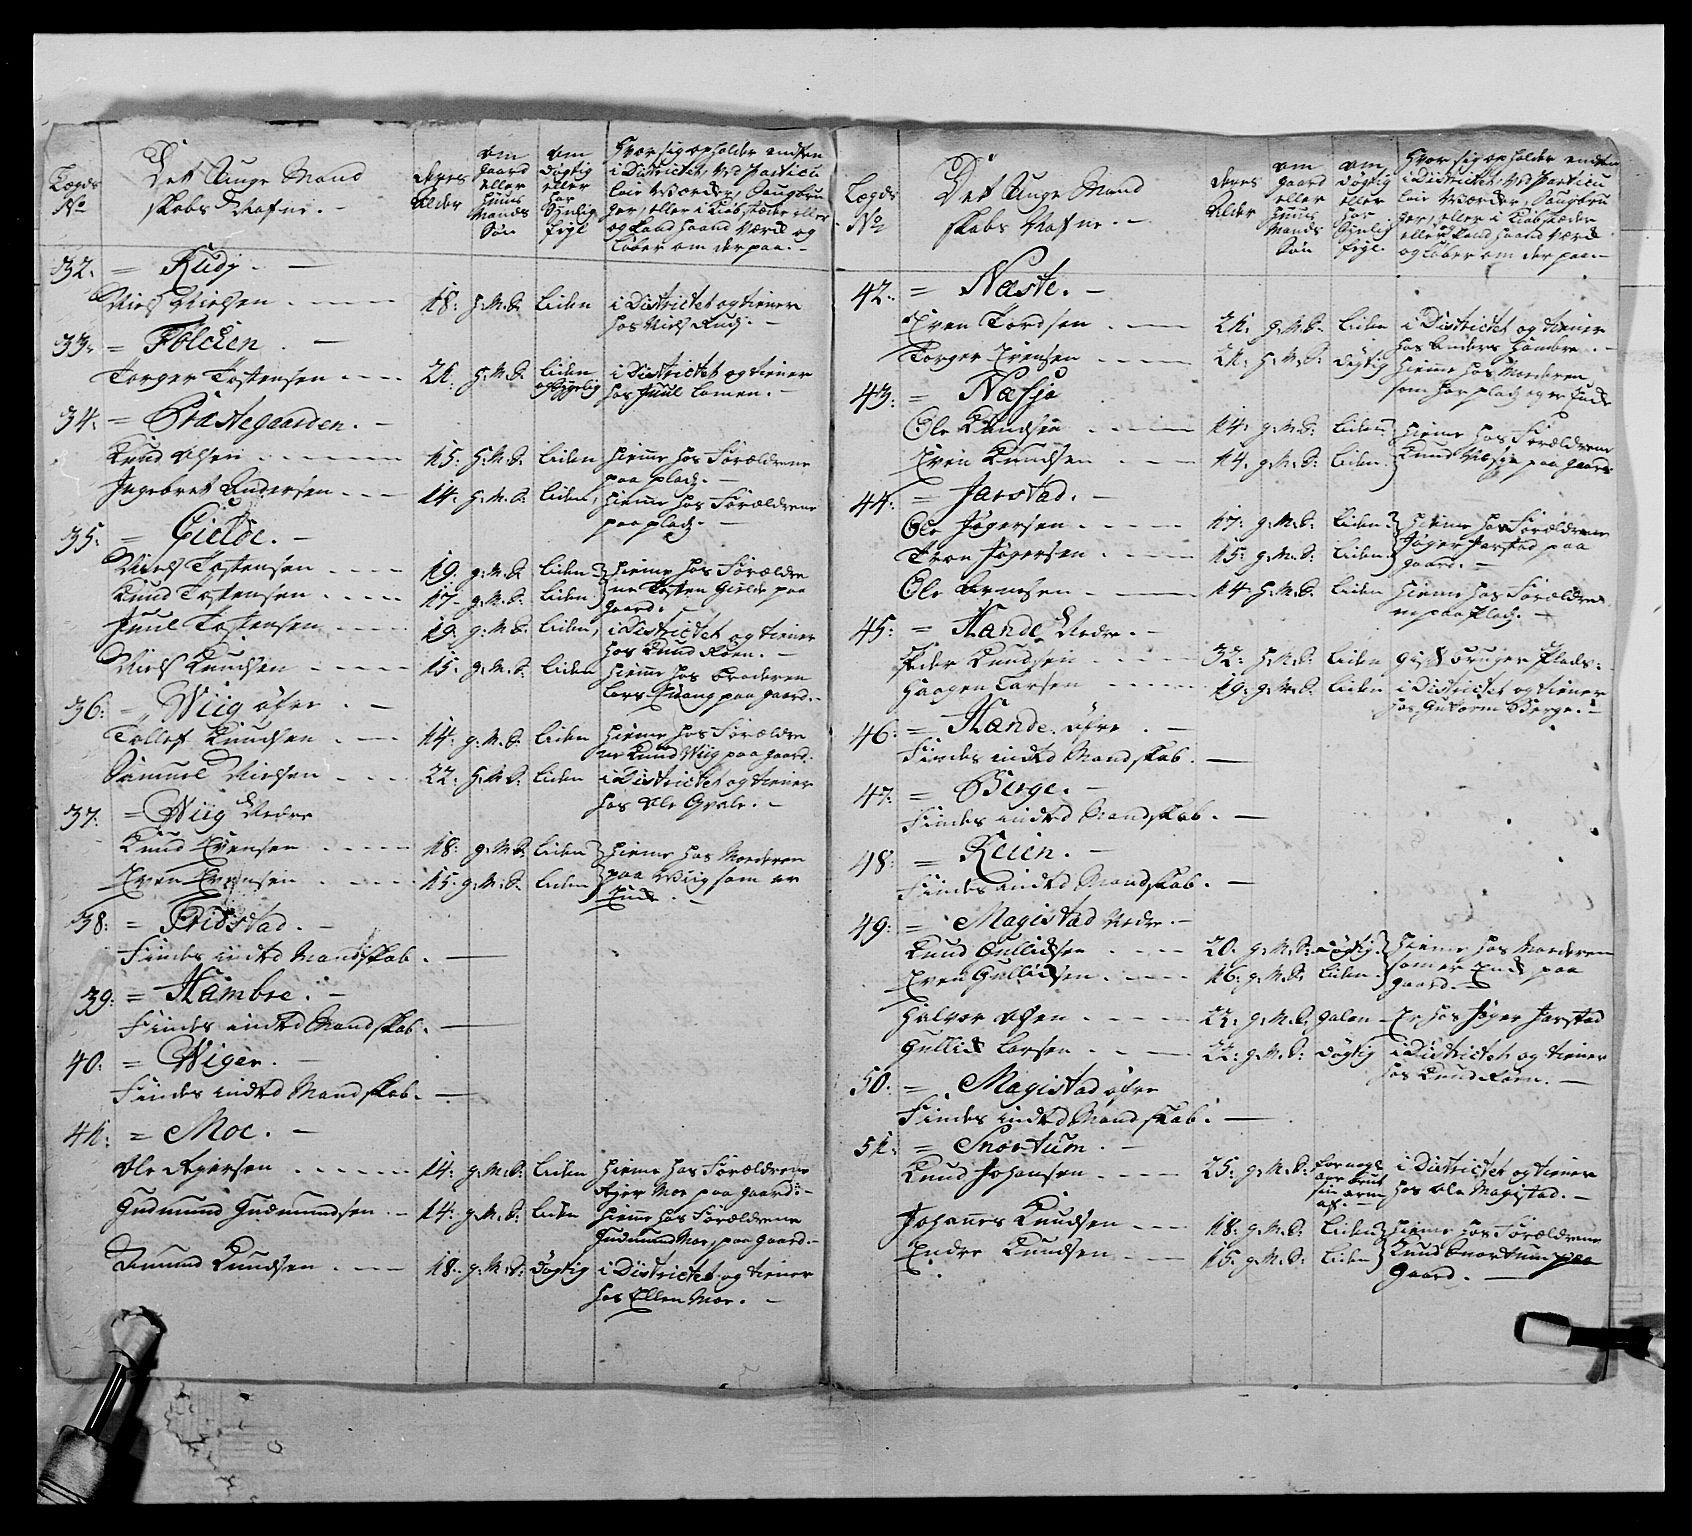 Lægds No
Det Unge Mand
skabs Nafne. -
deres Alder
om gaard eller Huus Mands Søn
om døgtig eller for Synlig fejl
Hvor sig opholder endten
i Districtet, ved Particu
lair Værker, Saugbru
ger, eller i Kiøbstæder eller
og Land haand Værk og
løber om der paa. -
32. = Rudj. -
Niels Nielsen. - - - - 18: H: M: S: liden i Districtet og tiener
hos Niels Rudj. -
33. = Folden. -
Torger Tostensen - - - - 21. H: M: S: liden i Districtet og tiener
hos Juul Lomen. -
34. = Præstegaarden. -
Knud Olsen - - - - 15. H: M: S: liden hieme hos Forældrene
paa plads. -
Ingebret Andersen - - - 14. H: M: S: liden, hieme hos Forældrene
paa plads. -
35. = Gielde. -
Niels Tostensen - - - - 19. g: M: S: liden hieme hos Forældre
Knud Tostensen - - - - 17. g: M: S: liden ne Tosten Gielde paa
gaard. -
Juul Tostensen - - - - 19. g: M: S: liden, i Districtet og tiener
hos Knud Roen. -
Niels Knudsen - - - - 15. g: M: S: liden hieme hos Broderen
Lars paa gaard. -
36. = Wiig øfre. -
Tollef Knudsen - - - 14. g: M: S: liden hieme hos Forældre
ne Knud Wiig paa gaard.
Samuel Nielsen - - - 22. H: M: S: liden i Districtet og tiener
hos Ole Qvale. -
37. = Wiig Nedre
Knud Evensen - - - - 18. g: M: S: liden hieme hos Moderen
Even Evensen - - - - 15. g: M: S: liden paa Wiig som er
Enke. -
38. = Fridstad. -
Findes intet Mandskab. -
39. = Hambre. -
Findes intet Mandskab. -
40. = Wigen. -
Findes intet Mandskab. -
41. = Moe. -
Ole Agersen - - - - 14. g: M: S: liden hieme hos Forældrene
Ager Moe paa gaard. -
Gudmund Gudmundsen - - 14. g: M: S: liden hieme hos Forældrene
Gudmund Moe, paa gaard. -
Amund Knudsen - - - 18. g: M: S: døgtig i Districtet og tiener
hos Ellen Moe. -
Lægds No
Det Unge Mand
skabs Nafne. -
deres Alder
om gaard eller Huus Mands Søn
om døgtig eller for Synlig fejl.
Hvor sig opholder endten
i Districtet, ved Particu
lair Værker, Saugbru
ger, eller i Kiøbstæder
eller og Land haand Værk
og løber om der paa -
42. = Næste. -
Even Tordsen - - - 21. g: M: S: liden i Districtet og tiener
hos Anders Hambre. -
Torger Evensen - - - - 21. H: M: S: døgtig hieme hos Moderen
som har plads og er Enke
43. = Næsja
Ole Knudsen - - - - 14. g: M: S: liden hieme hos Forældrene
Even Knudsen - - - - 14. g: M: S: liden. Knud Næsje paa gaard
44. = Jarstad. -
Ole Jøgersen - - - - 17. g: M: S: liden hieme hos Forældrene
Tron Jøgersen - - - - 15. g: M: S: liden. Jøger Jarstad paa
gaard. -
Ole Arnesen - - - - 14. H: M: S: liden hieme hos Forældre
ne paa Plads. -
45. = Hande Nedre. -
Peder Knudsen - - - - 32. H: M: S: liden gift bruger Plads.
Haagen Larsen - - - - 19. g: M: S: liden i Districtet og tiener
hos Guttorm Berge. -
46. = Hande. øfre -
Findes intet Mandskab. -
47. = Berge. -
Findes intet Mandskab. -
48. = Reien. -
Findes intet Mandskab. -
49. = Magistad Nedre. -
Knud Gullicksen - - - 20. g: M: S: døgtig. hieme hos Moderen
Even Gullicksen - - - - 16. g: M: S: liden som er Enke paa
gaard. -
Halvor Olsen - - - - 22. g: M: S: galen - Er hos Jøger Jarstad
Gullick Larsen - - - 22. g: M: S: døgtig i Districtet og tiener
hos Knud Roen. -
50. = Magistad øfre
Findes intet Mandskab. -
51. = Snortum. -
Knud Johansen - - - - 25. g: M: S: for nogle aar brut sin arm af. - i Districtet og tiener
hos Ole Magistad. -
Johannes Knudsen - - - 18. g: M: S: liden hieme hos Forældrene
Endre Knudsen - - - 15. g: M: S: liden Knud Snortum paa
Gaard. -